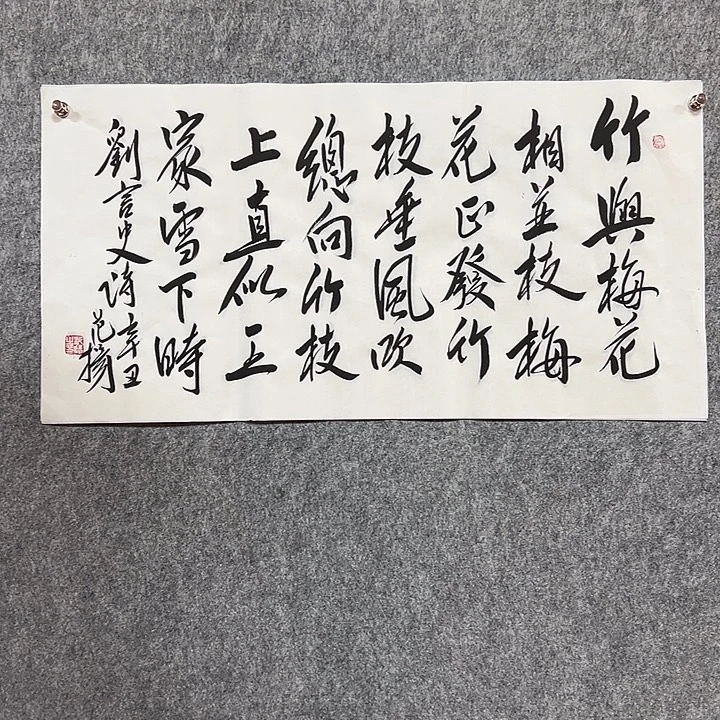 竹與梅花
相並枝梅
花正發竹
枝垂風吹
總向竹枝
上直似王
家雪下時
劉言史詩辛丑
范揚